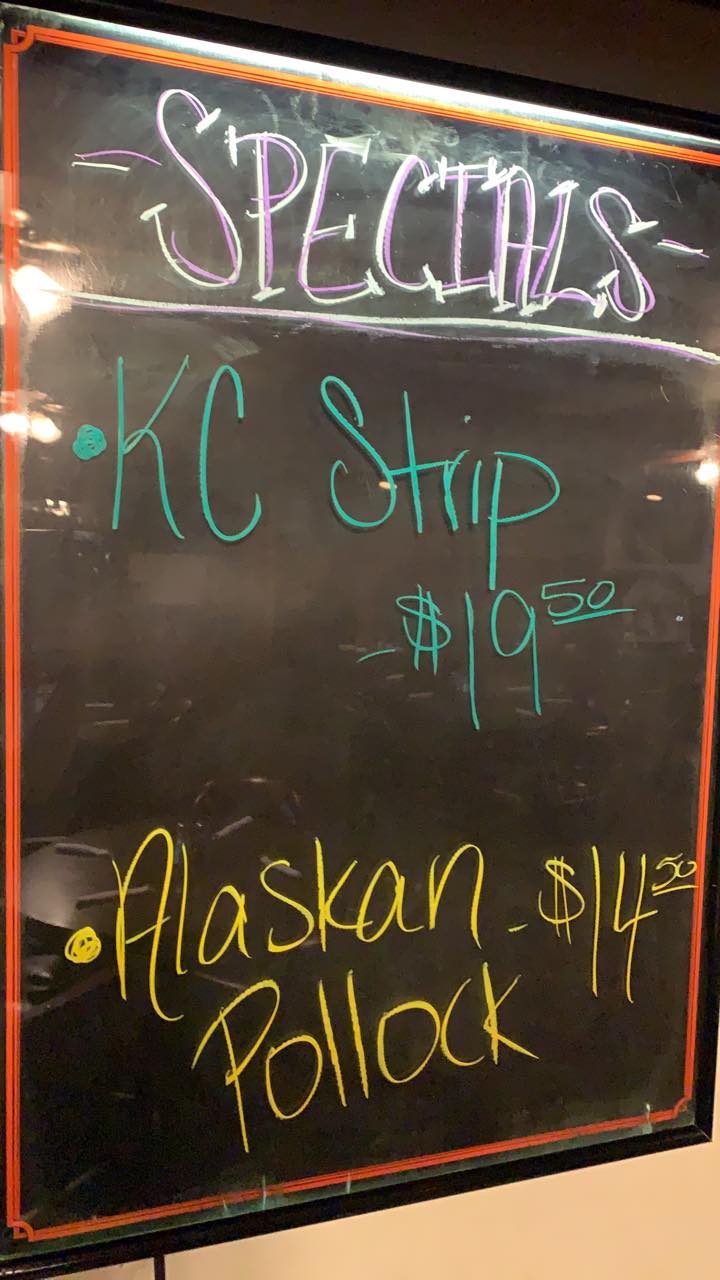 -SPECIALS-
•KC Strip
-$19 50
•Alaskan - $14 50
Pollock